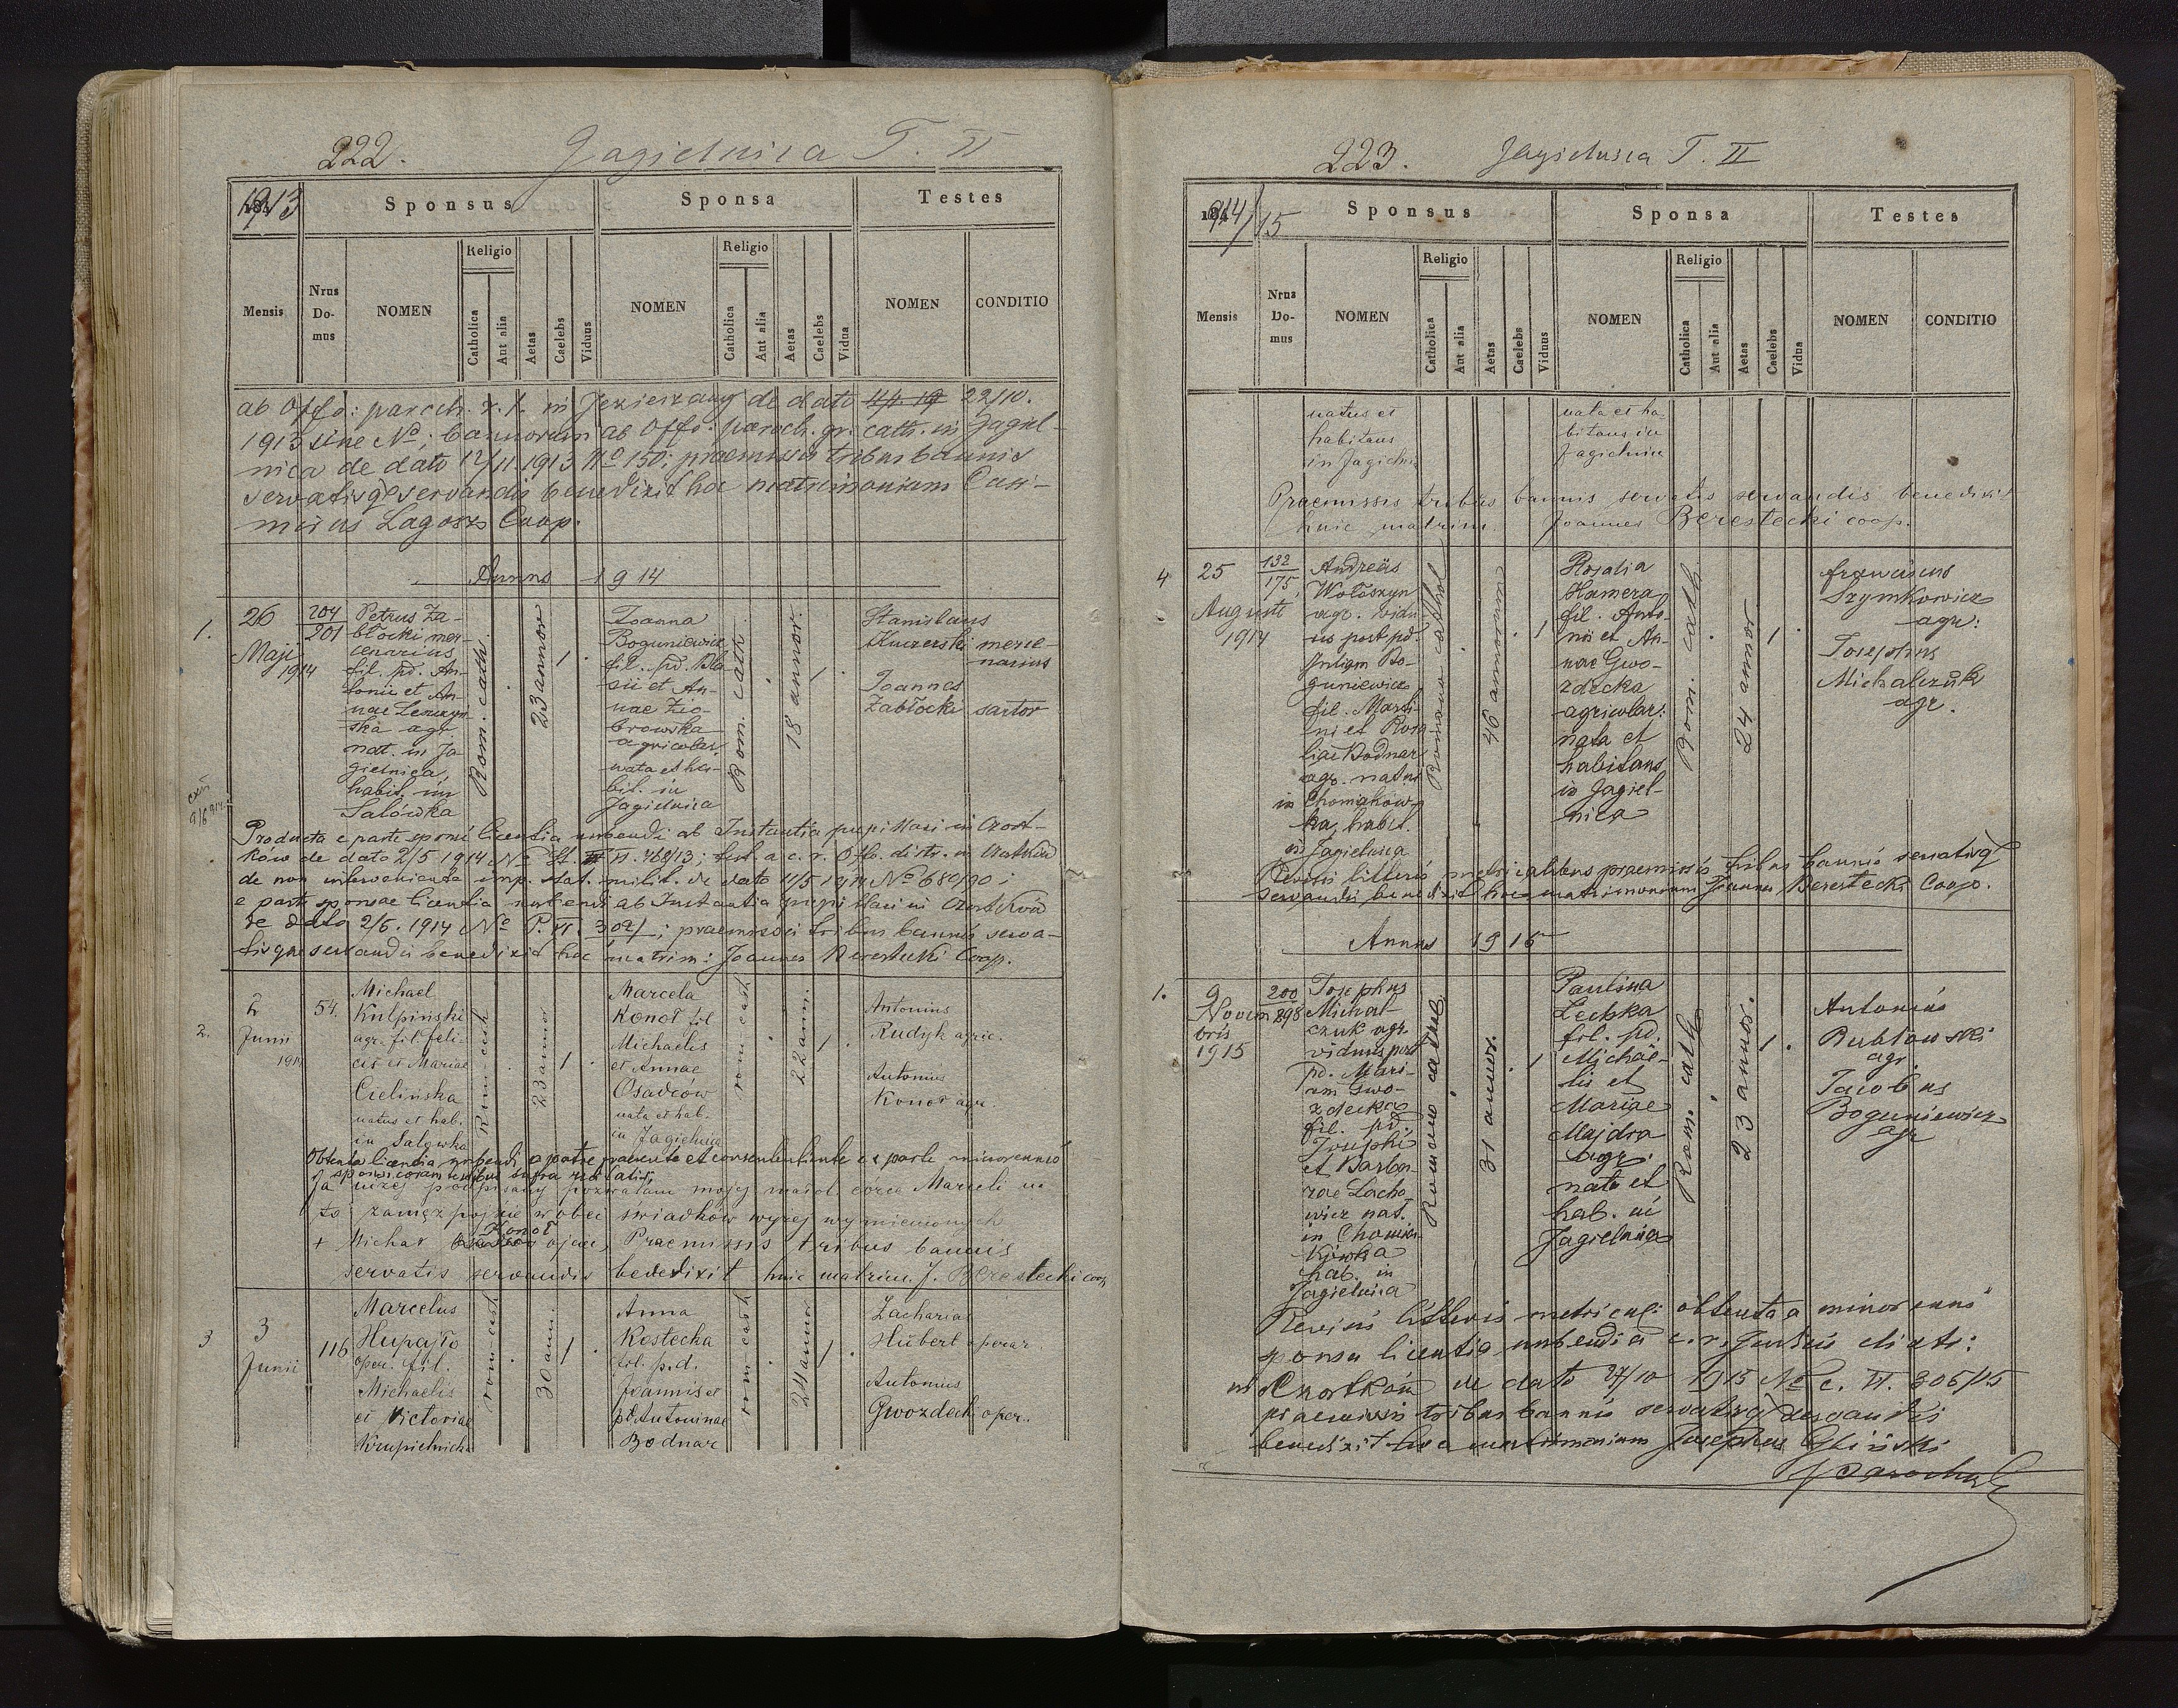 222. Jagielnica T. II
1913 Sponsus Sponsa Testes
Mensis Nrus Domus NOMEN Religio Catholica Aut alia Aetas Caelebs Viduus NOMEN Religio Catholica Aut alia Aetas Caelebs Vidua NOMEN CONDITIO
ab Offo: paroch. r. l. in Jezierzany de dato 22/10.
1913 sine No; bannorum ab Offo. paroch. gr. cath. in Jagiel-
nica de dato 12/11 1913 No 150; praemissis tribus bannis
servatisq servandis benedixit hoc matrimonium Casi-
mirus Lagosz Coop.
Annus 1914
1.
26
Maji
1914
204
201
Petrus Za-
błocki mer-
cenarius
fil. pd. An-
tonii et An-
nae Leszczyń-
ska agr
nat. in Ja
gielnica,
habit. in
Salówka
Rom. cath.
23 annor
1
Joanna
Boguniewicz
fil. pd. Bla
sii et An-
nae Dio-
browska
agricolar
nata et ha-
bit. in
Jagielnica
Rom. cath.
18 annor.
1
Stanislaus
Kuczerski merce-
narius
Joannes
Zabłocki sartor
Producta e parte sponsi licentia nubendi ab Instantia pupillari in Czort-
ków de dato 2/5 1914 No
de non interveniente imp. stat. milit. de dato 11/5 1914 No 680/90;
e parte sponsae licentia nubendi ab Instantia pupillari in Czortków
de dato 2/5. 1914 No P. VI. 302/1; praemissis tribus bannis serva-
tisque servandis benedixit hoc matrim: Joannes Berestecki Coop.
2.
2
Junii
1914
54.
Michael
Kulpiński
agr. fil. Feli-
cis et Mariae
Cielińska
natus et hab.
in Salowka
Rom-cath
23 annor
1
Marcela
Konot fil
Michaelis
et Annae
Osadców
nata et hab.
in Jagielnica
rom cath
22 ann.
1
Antonius
Rudyk agric.
Antonius
Konot agr.
Obtenta licentia nubendi a patre parente et consentiente ex parte minorennis
sponsi coram testibus supra
ja niżej podpisany pozwalam mojej małol. córce Marceli na
to zamęz pojście w obec świadków wyżej wymienionych
Konot
+ Michał ojciec, Praemissis tribus bannis
servatis servandis benedixit huic matrim. J. Berestecki coop
3
3
Junii
116
Marcelus
Hupajło
oper. fil.
Michaelis
et Victoriae
Krupielnicka
rom-cath
30 ann.
1
Anna
Kostecka
fil. p.d.
Joannis et
pd Antoninae
Bodnar
rom cath
24 annor
1
Zacharias
Hübert operar.
Antonius
Gwozdecki oper.
223. Jagielnica T. II
1914/15 Sponsus Sponsa Testes
Mensis Nrus Domus NOMEN Religio Catholica Aut alia Aetas Caelebs Viduus NOMEN Religio Catholica Aut alia Aetas Caelebs Vidua NOMEN CONDITIO
natus et
habitans
in Jagielnica
nata et ha-
bitans in
Jagielnica
Praemissis tribus bannis servatis servandis benedixit
huic matrim. Joannes Berestecki coop.
4
25
Augusti
1914
132
175
Andreas
Wołoszyn
agr. vidu
us post pd.
Juliam Bo-
guniewicz
fil. Marti-
ni et Rosa-
liae Bodnar
agr. natus
in Chomiaków-
ka, habit.
in Jagielnica
Romano cathol
46 annorum
1
Rosalia
Hamera
fil. Anto-
nii et An-
nae Gwo-
zdecka
agricolar.
nata et
habitans
in Jagiel-
nica
Rom. cath.
24 annor
1
Franciscus
Szymkowicz
agr:
Josephus
Michalczuk
agr.
Revisis litteris metricalibus praemissis tribus bannis servatisq
servandis benedixit hoc matrimonium Joannes Berestecki Coop.
Annus 1915
1.
9
Novem
bris
1915
200
298
Josephus
Michal-
czuk agr.
viduus post
pd. Mari-
am Gwo-
zdecka
fil. pd.
Josephi
et Barba-
rae Lacho-
wicz nat.
in Chomia-
kówka
hab. in
Jagielnica
Romano cathol
31 annor.
1
Paulina
Lecka
fil. pd.
Michae-
lis et
Mariae
Majdra
agr.
nata et
hab. in
Jagielnica
Rom. cath
23 annor.
1
Antonius
Bubłowski
agr
Jacobus
Boguniewicz
agr
Revisis litteris metrical: obtenta a minorennis
sponsa licentia nubendi a c. r. Judicii distr:
in Czortków de dato 27/10 1915 No C. VI. 306/15
praemissis tribus bannis servatisq servandis
benedixit hoc matrimonium Josephus Gliński
parochus